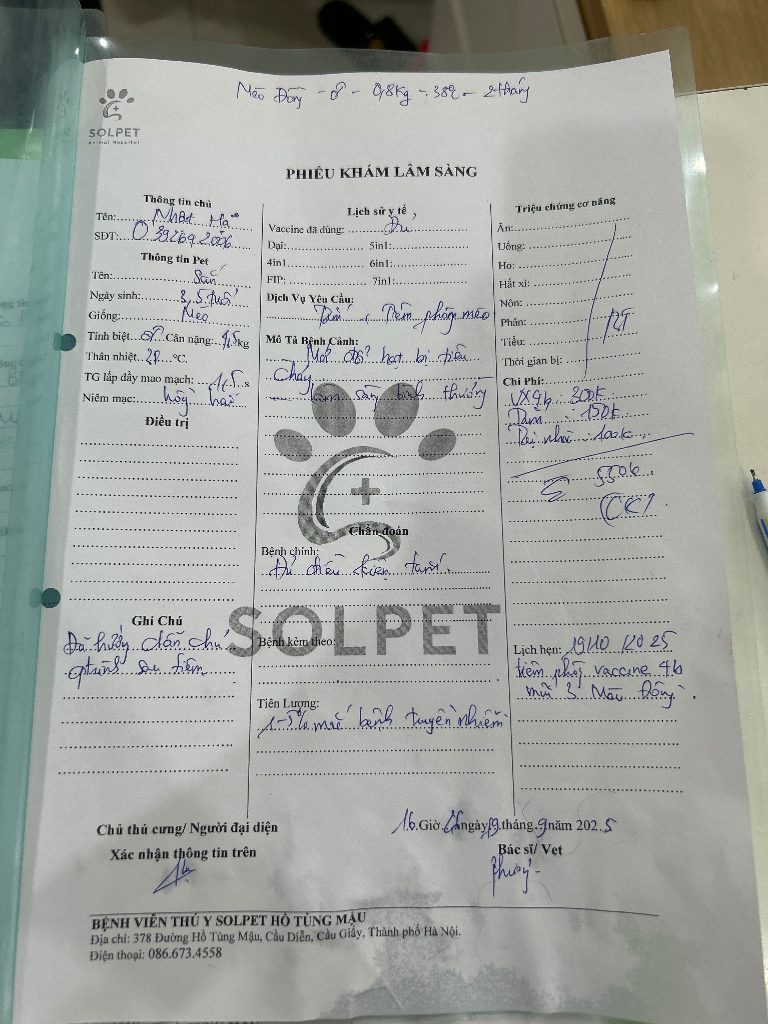 Mèo Đông - ♂ - 0,8kg - 38,2 - 2 tháng
SOLPET
Animal Hospital
PHIẾU KHÁM LÂM SÀNG
Thông tin chủ
Tên: Nhật Hạ
SĐT:
Thông tin Pet
Tên:
Ngày sinh: 3,5 tuổi
Giống: Mèo
Tính biệt Cân nặng: kg
Thân nhiệt °C.
TG lấp đầy mao mạch: 1,5 s
Niêm mạc: hồng hào
Điều trị
Ghi Chú
Đã hướng dẫn chủ
sau tiêm
Lịch sử y tế
Vaccine đã dùng: Đủ
Dại: 5in1:
4in1 6in1:
FIP: 7in1:
Dịch Vụ Yêu Cầu:
Tắm, Tiêm phòng mèo
Mô Tả Bệnh Cảnh:
Mới đổi hạt bị tiêu
chảy
lâm sàng bình thường
Chẩn đoán
Bệnh chính:
Đủ điều kiện tiêm.
SOLPET
Bệnh kèm theo:
Tiên Lượng:
1-5% mắc bệnh truyền nhiễm
Triệu chứng cơ năng
Ăn:
Uống:
Ho:
Hắt xì:
Nôn:
Phân:
Tiểu: BT
Thời gian bị:
Chi Phí:
VX4b 300k
Tắm : 150k
Dại nhỏ : 100k
Σ 550k.
CK
Lịch hẹn: 19/10/2025
tiêm phòng vaccine 4b
mũi 3 Mèo Đông.
Chủ thú cưng/ Người đại diện
Xác nhận thông tin trên
16 Giờ ngày 19 tháng 9 năm 2025
Bác sĩ/ Vet
BỆNH VIỆN THÚ Y SOLPET HỒ TÙNG MẬU
Địa chỉ: 378 Đường Hồ Tùng Mậu, Cầu Diễn, Cầu Giấy, Thành phố Hà Nội.
Điện thoại: 086.673.4558